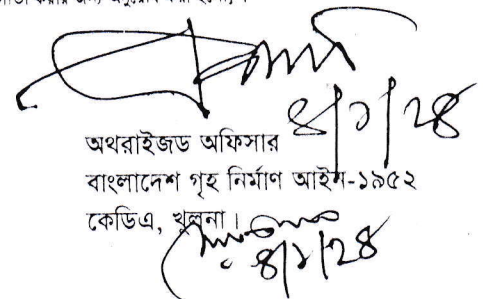 করার জন্য অনুরোধ করা হলো।
৪/১/২৪
অথরাইজড অফিসার
বাংলাদেশ গৃহ নির্মাণ আইন-১৯৫২
কেডিএ, খুলনা।
৪/১/২৪